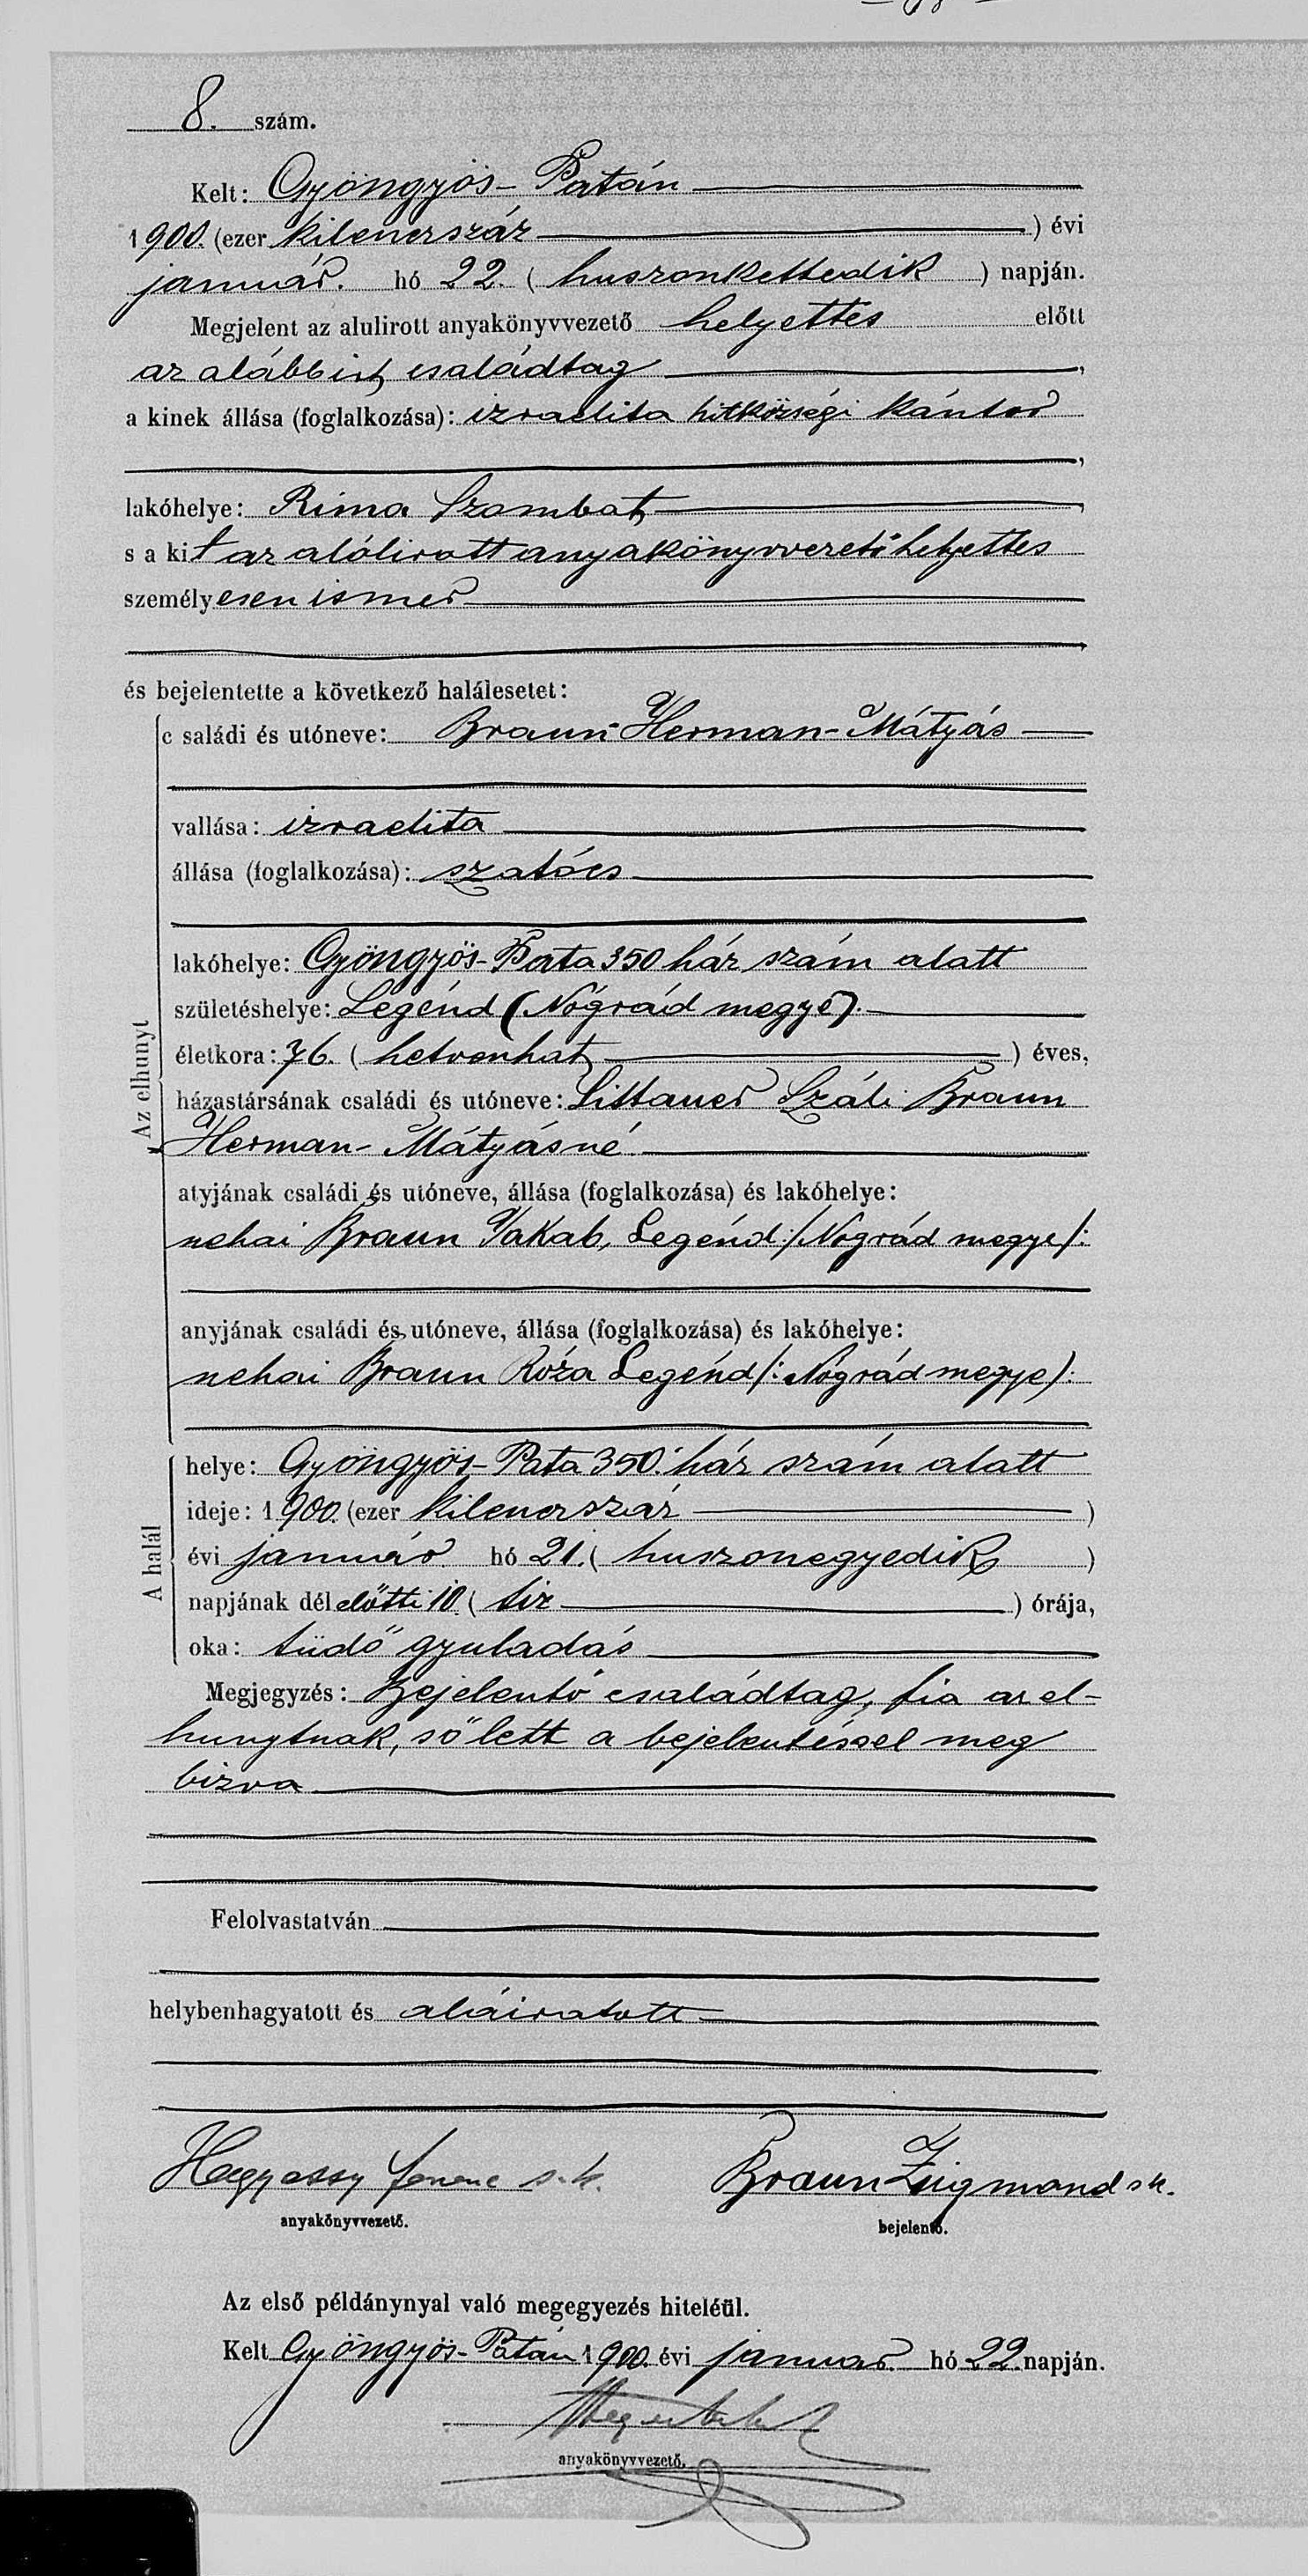 8. szám.
Kelt: Gyöngyös-Patán
1900. (ezer kilenczszáz ) évi
január. hó 22. ( huszonkettedik ) napján.
Megjelent az alulirott anyakönyvvezető helyettes előtt
az alábbirt családtag,
a kinek állása (foglalkozása): izraelita hitközségi kántor
,
lakóhelye: Rima Szombat,
s a kit az alólirott anyakönyvvezető helyettes
személyesen ismer
és bejelentette a következő halálesetet:
Az elhunyt
családi és utóneve: Braun Herman-Mátyás
vallása: izraelita
állása (foglalkozása): szatócs
lakóhelye: Gyöngyös-Pata 350 ház szám alatt
születéshelye: Legénd (Nógrád megye).
életkora: 76. ( hetvenhat ) éves,
házastársának családi és utóneve: Littauer Száli Braun
Herman-Mátyásné
atyjának családi és utóneve, állása (foglalkozása) és lakóhelye:
nehai Braun Jakab, Legénd :/Nógrád megye/:
anyjának családi és utóneve, állása (foglalkozása) és lakóhelye:
nehai Braun Róza Legénd /: Nógrád megye):
A halál
helye: Gyöngyös-Pata 350. ház szám alatt
ideje: 1900. (ezer kilenczszáz )
évi január hó 21. ( huszonegyedik )
napjának délelőtti 10. ( tiz ) órája,
oka: tüdő gyuladás
Megjegyzés: Bejelentő családtag, fia az el-
hunytnak, s ő lett a bejelentéssel meg
bizva
Felolvastatván
helybenhagyatott és aláiratott
Ferenc s.k. Braun Zsigmond sk.
anyakönyvvezető. bejelentő.
Az első példánynyal való megegyezés hiteléül.
Kelt Gyöngyös-Patán 1900. évi január. hó 22. napján.
anyakönyvvezető.